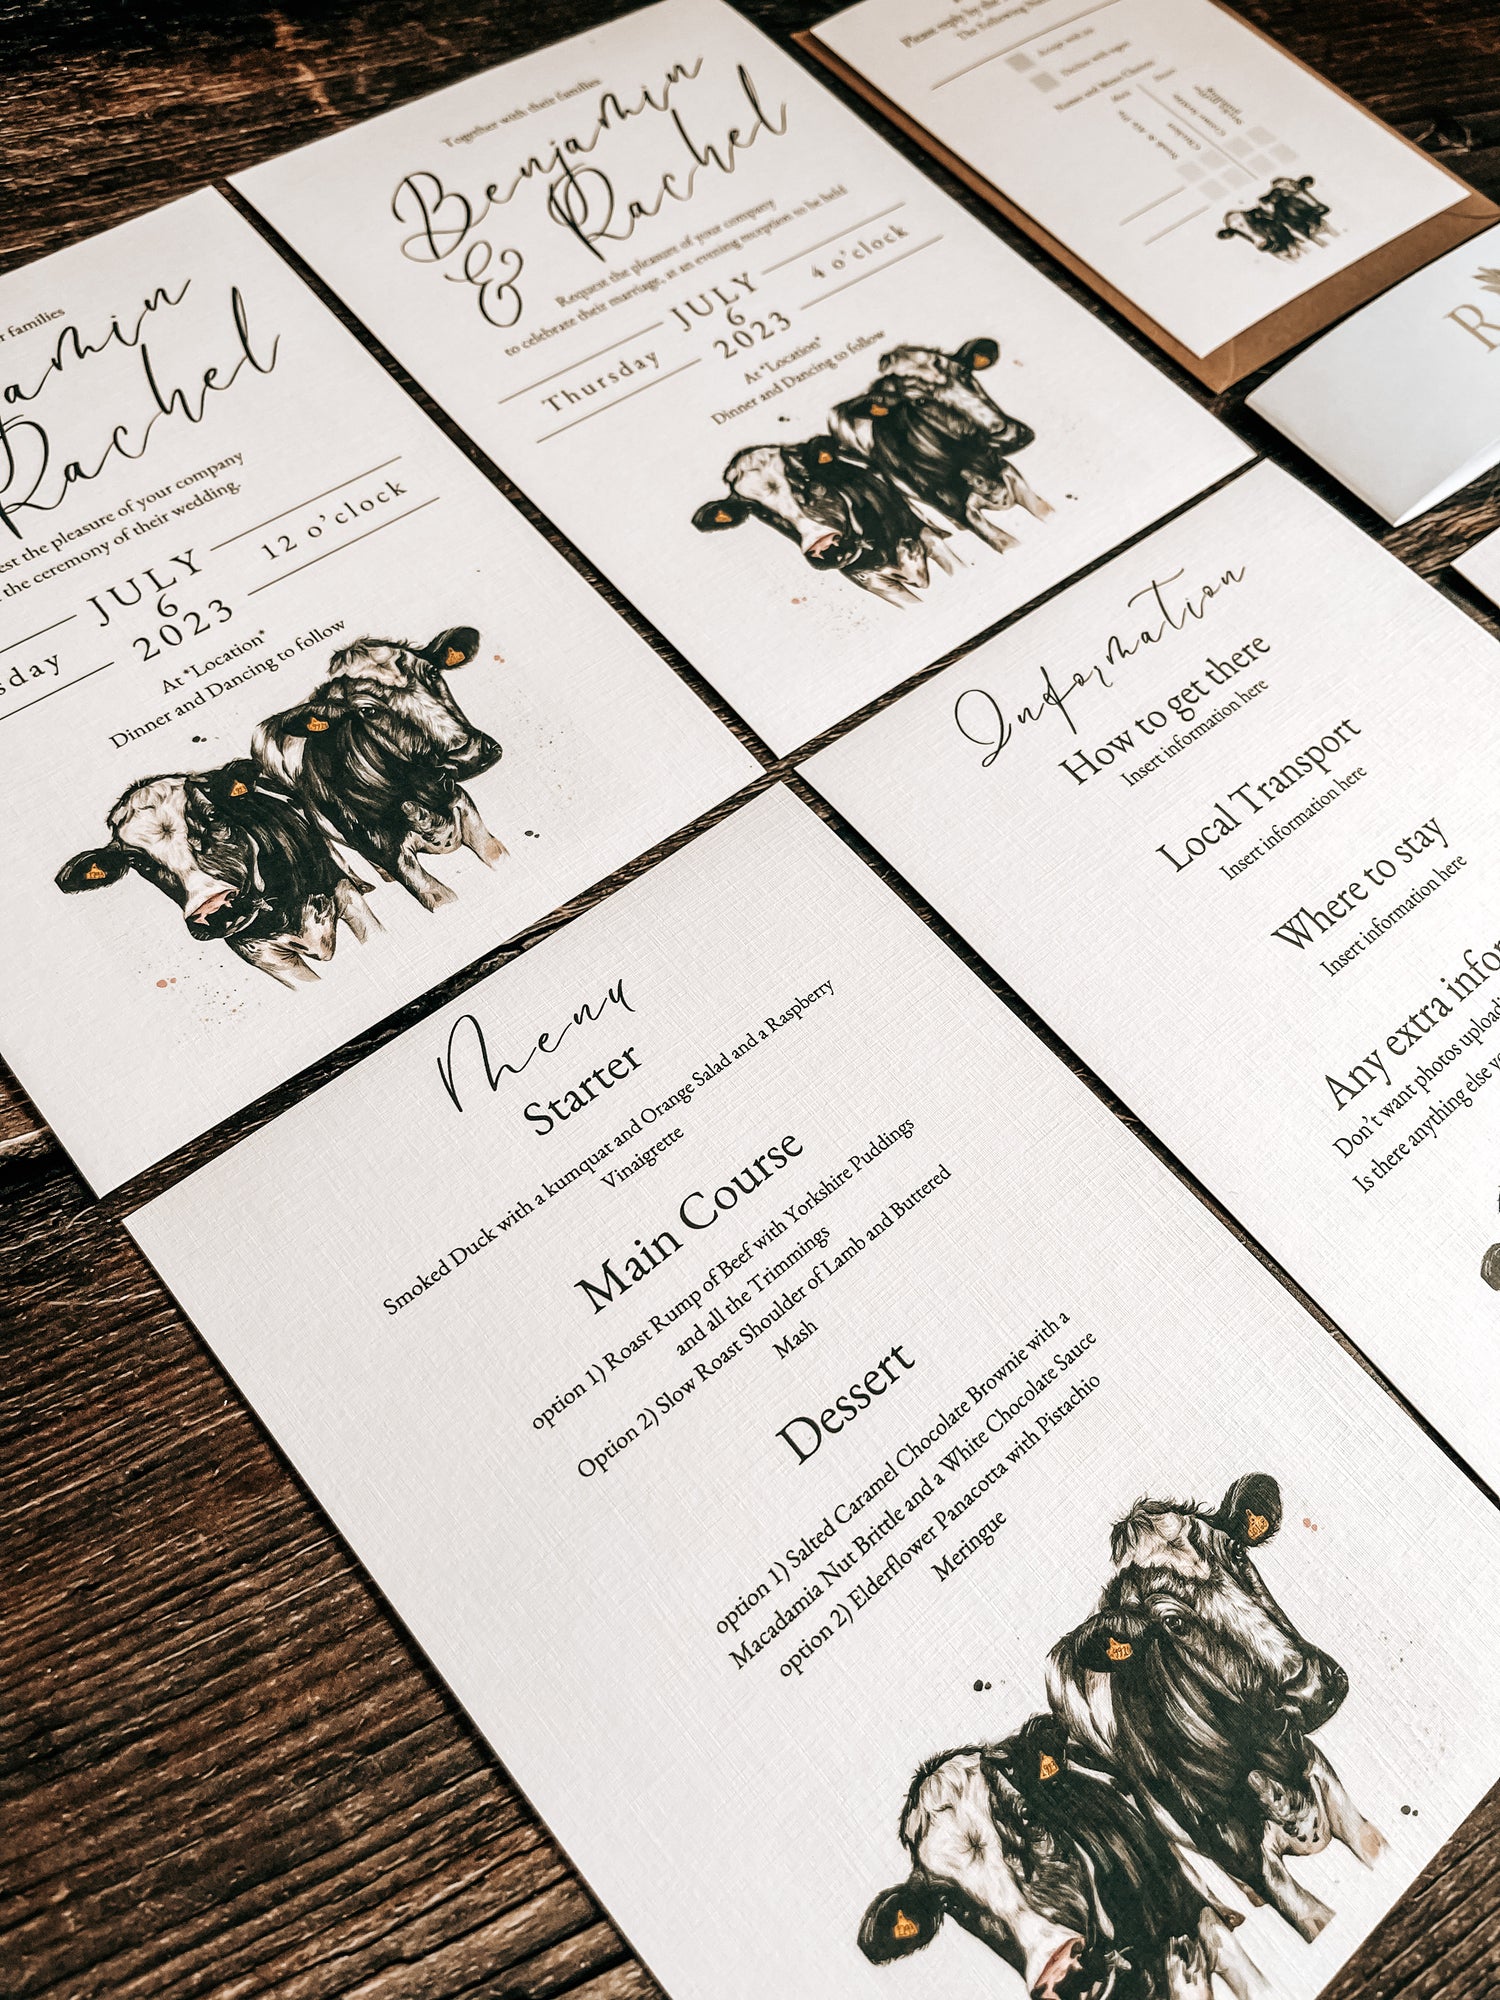 r families
amin
Rachel
est the pleasure of your company
the ceremony of their wedding.
sday
JULY
6
2023
12 o'clock
At *Location*
Dinner and Dancing to follow
Together with their families
Benjamin
& Rachel
Request the pleasure of your company
to celebrate their marriage, at an evening reception to be held
Thursday
JULY
6
2023
4 o'clock
At *Location*
Dinner and Dancing to follow
Please reply by the
The Following
R
Menu
Starter
Smoked Duck with a kumquat and Orange Salad and a Raspberry
Vinaigrette
Main Course
option 1) Roast Rump of Beef with Yorkshire Puddings
and all the Trimmings
Option 2) Slow Roast Shoulder of Lamb and Buttered
Mash
Dessert
option 1) Salted Caramel Chocolate Brownie with a
Macadamia Nut Brittle and a White Chocolate Sauce
option 2) Elderflower Panacotta with Pistachio
Meringue
Information
How to get there
Insert information here
Local Transport
Insert information here
Where to stay
Insert information here
Any extra infor
Don't want photos uploadi
Is there anything else yo